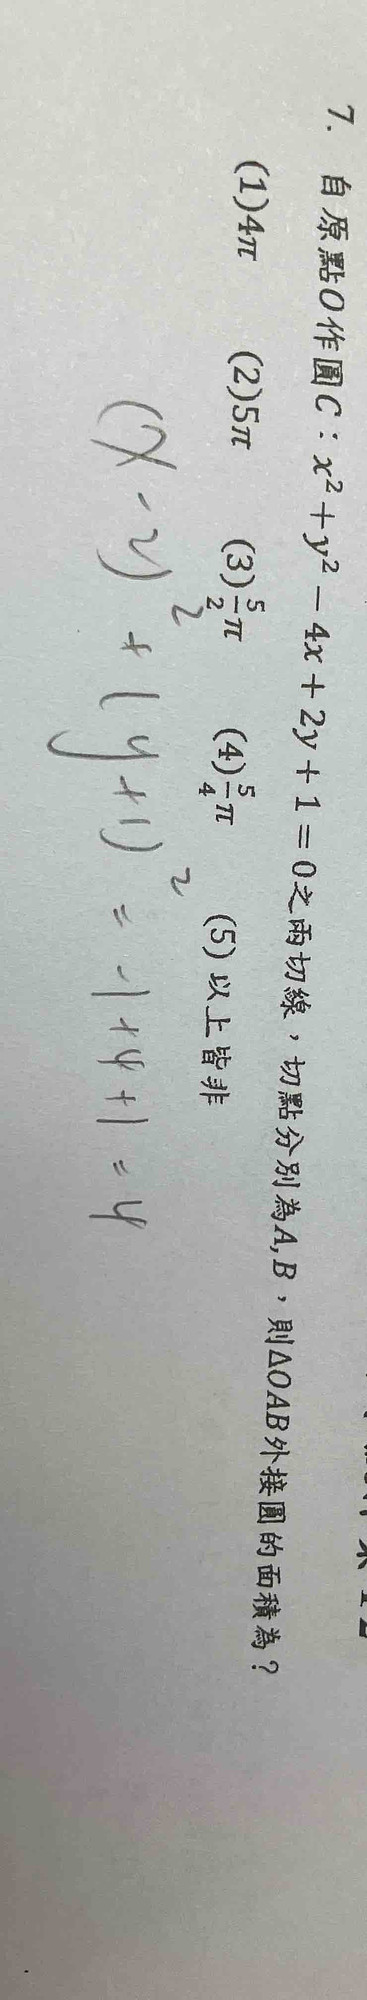 7. 自原點O作圓C：x²+y²−4x+2y+1=0之兩切線，切點分別為A,B，則ΔOAB外接圓的面積為？
(1)4π (2)5π (3)5/2π (4)5/4π (5)以上皆非
(x-2)²+(y+1)²=-1+4+1=4